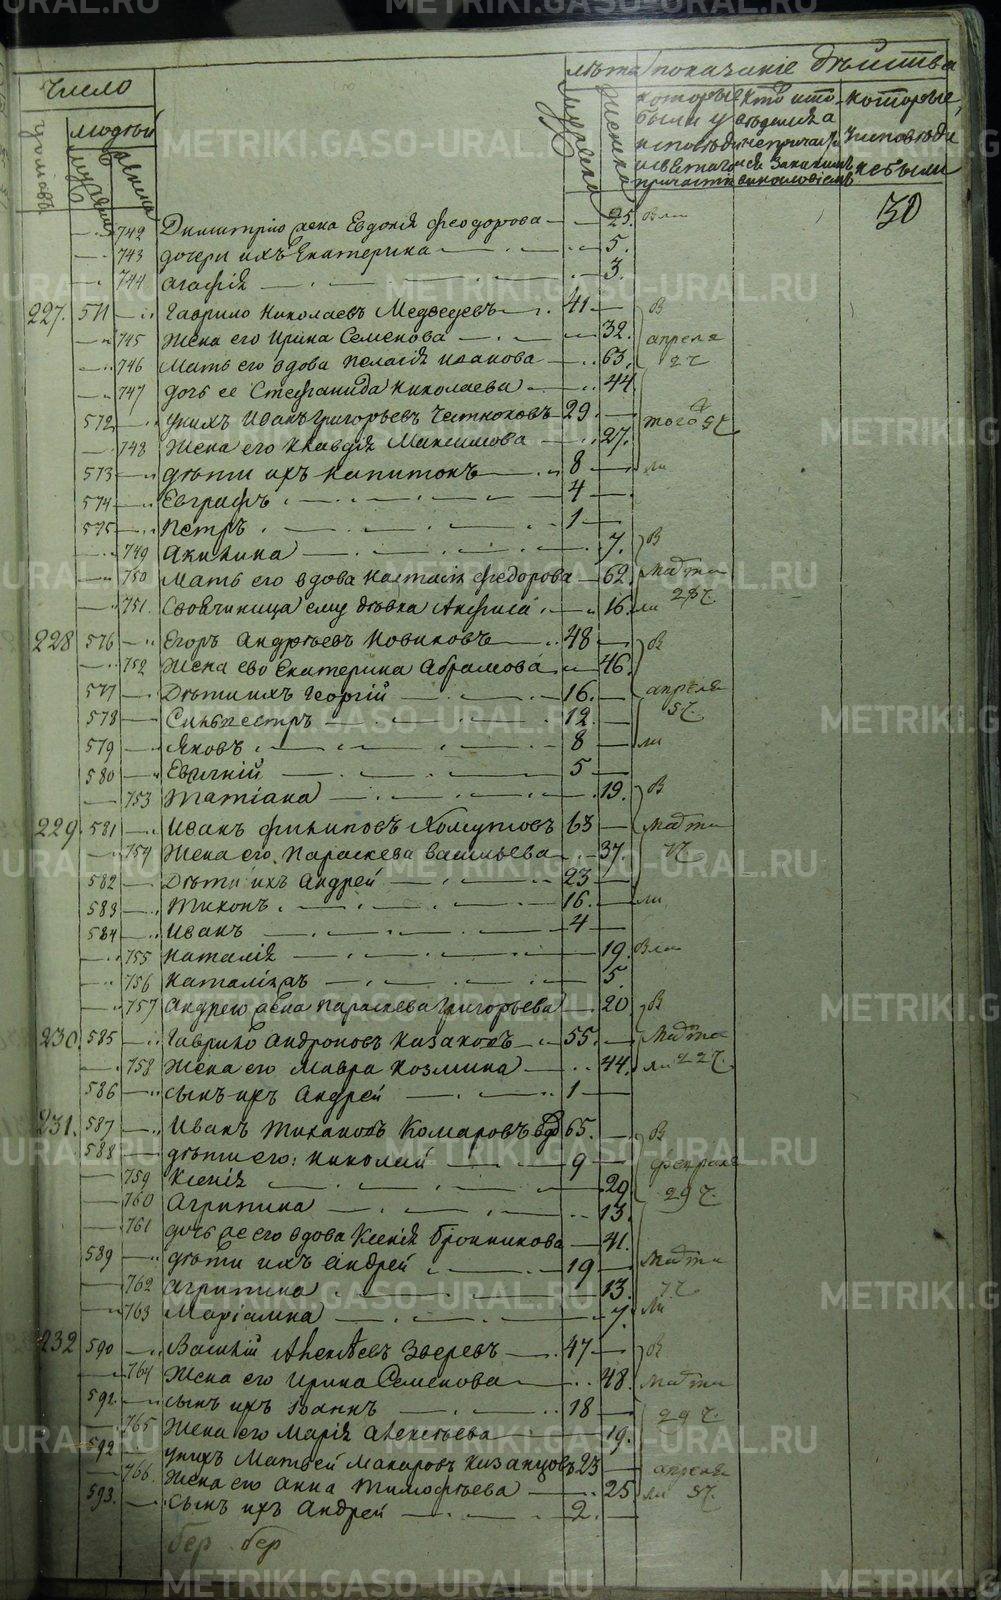 METRIKI.GASO-URAL.RU
Число
лѣта показаніе дѣйства
людей
мужеска
женска
которые были у исповѣди и святаго причастія
которые у исповѣди не были
30
742 Димитрію жена Евдокія Феодорова 25. были
743 дочери ихъ Екатерина 5.
744 Агафія 3.
227. 571 Гаврило Николаевъ Медведевъ 41 В
745 Жена его Ирина Семенова 32. апреля
746 Мать его вдова Пелагія Иванова 63. 2 ч.
747 дочь ее Стефанида Николаева 44
572 у нихъ Иванъ Григорьевъ Чесноковъ 29 того 5 ч.
748 Жена его Клавдія Максимова 27.
573 дѣти ихъ Капитонъ 8 ли
574 Евграфъ 4
575 Петръ 1
749 Акилина 7. В
750 Мать его вдова Настасія Федорова 62. Марта
751. Своячиница ему дѣвка Анфиса 16. ли 28 ч.
228 576 Егоръ Андреевъ Новиковъ 48 В
752 Жена ево Екатерина Абрамова 46.
577 Дѣти ихъ Георгій 16. апреля
578 Сильвестръ 12 5 ч.
579 Яковъ 8 ли
580 Евгеній 5
753 Татіана 19. В
229 581 Иванъ Филиповъ Хомутовъ 63 Марта
754 Жена его Параскева Васильева 37. 7 ч.
582 Дѣти ихъ Андрей 23
583 Тихонъ 16. ли
584 Иванъ 4
755 Наталія 19.
756 Наталія 5.
757 Андрею жена Параскева Григорьева 20 В
230. 585 Гаврило Андроновъ Казаковъ 55. Марта
758 Жена его Мавра Козмина 44. ли 22 ч.
586 сынъ ихъ Андрей 1
231. 587 Иванъ Тихановъ Комаровъ вдо 65. В
588 дѣти его: Николай 9 февраля
759 Ксенія 20 29 ч.
760 Агрипина 13.
761 дочь же его вдова Ксенія Бронникова 41.
589 дѣти ихъ Андрей 19 Марта
762 Агрипина 13. 7 ч.
763 Маріамна 7. ли
232 590 Василій Алексѣевъ Зверевъ 47 В
764 Жена его Ирина Семенова 48. Марта
591. сынъ ихъ Іоаннъ 18 29 ч.
765 Жена его Марія Алексѣева 19.
592 у нихъ Матвей Макаровъ Казанцовъ 23 апреля
766. Жена его Анна Тимофѣева 25 ли 5 ч.
593. Сынъ ихъ Андрей 2